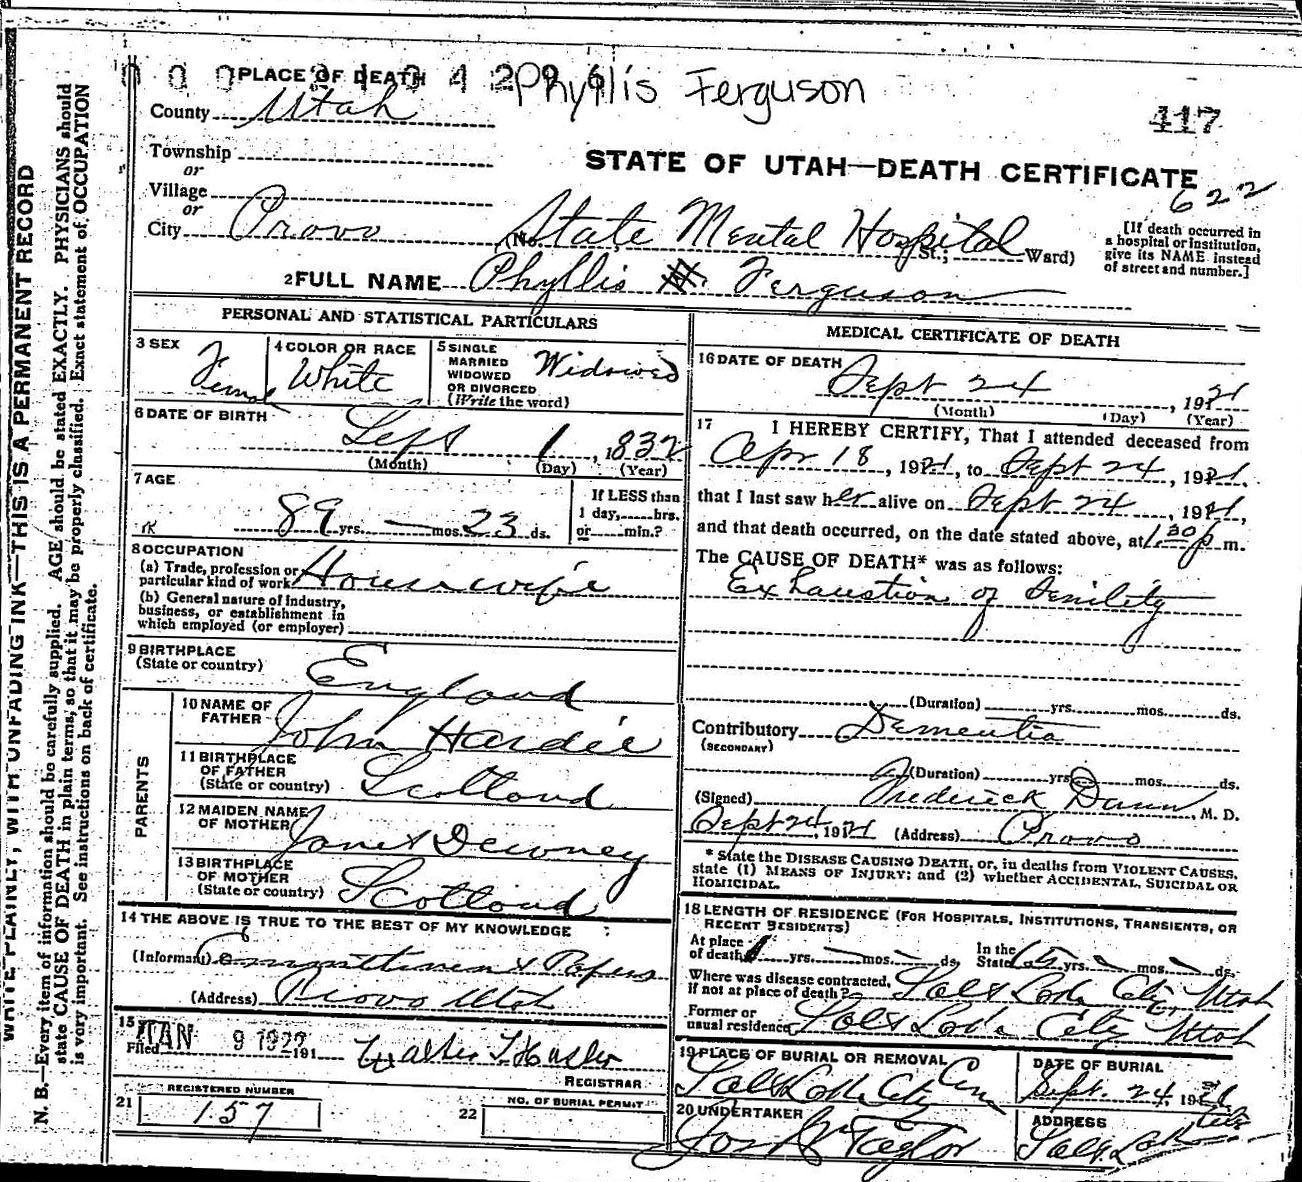 PLACE OF DEATH Phyllis Ferguson
County Utah
417
Township
or
STATE OF UTAH—DEATH CERTIFICATE
622
Village
or
City Provo (No. State Mental Hospital St.; Ward)
[If death occurred in
a hospital or institution,
give its NAME instead
of street and number.]
2 FULL NAME Phyllis Ferguson
PERSONAL AND STATISTICAL PARTICULARS
3 SEX Female
4 COLOR OR RACE White
5 SINGLE
MARRIED
WIDOWED
OR DIVORCED
(Write the word)
Widowed
6 DATE OF BIRTH
Sept 1, 1832
(Month) (Day) (Year)
7 AGE
89 yrs. — mos. 23 ds.
If LESS than
1 day, hrs.
or min.?
8 OCCUPATION
(a) Trade, profession or
particular kind of work Housewife
(b) General nature of industry,
business, or establishment in
which employed (or employer)
9 BIRTHPLACE
(State or country) England
PARENTS
10 NAME OF
FATHER John Hardie
11 BIRTHPLACE
OF FATHER
(State or country) Scotland
12 MAIDEN NAME
OF MOTHER Janet Downey
13 BIRTHPLACE
OF MOTHER
(State or country) Scotland
14 THE ABOVE IS TRUE TO THE BEST OF MY KNOWLEDGE
(Informant) Committment Papers
(Address) Provo Utah
15
Filed JAN 9 1922 191
REGISTRAR
REGISTERED NUMBER
21 157
22 NO. OF BURIAL PERMIT
MEDICAL CERTIFICATE OF DEATH
16 DATE OF DEATH
Sept 24, 1921
(Month) (Day) (Year)
17 I HEREBY CERTIFY, That I attended deceased from
Apr 18, 1921, to Sept 24, 1921.
that I last saw her alive on Sept 24, 1921,
and that death occurred, on the date stated above, at 1:30 p m.
The CAUSE OF DEATH* was as follows:
Exhaustion of Senility
(Duration) yrs. mos. ds.
Contributory Dementia
(SECONDARY)
(Duration) yrs. mos. ds.
(Signed) Frederick Dunn, M. D.
Sept 24, 1921 (Address) Provo
* State the DISEASE CAUSING DEATH, or, in deaths from VIOLENT CAUSES,
state (1) MEANS OF INJURY; and (2) whether ACCIDENTAL, SUICIDAL OR
HOMICIDAL.
18 LENGTH OF RESIDENCE (FOR HOSPITALS, INSTITUTIONS, TRANSIENTS, OR
RECENT RESIDENTS)
At place
of death yrs. mos. ds. In the
State yrs. mos. ds.
Where was disease contracted,
if not at place of death? Salt Lake City, Utah
Former or
usual residence Salt Lake City Utah
19 PLACE OF BURIAL OR REMOVAL
Salt Lake City Cem
DATE OF BURIAL
Sept. 24, 1921
20 UNDERTAKER
Jos Wm Taylor
ADDRESS
Salt Lake City
WRITE PLAINLY, WITH UNFADING INK—THIS IS A PERMANENT RECORD
N. B.—Every item of information should be carefully supplied. AGE should be stated EXACTLY. PHYSICIANS should
state CAUSE OF DEATH in plain terms, so that it may be properly classified. Exact statement of OCCUPATION
is very important. See instructions on back of certificate.